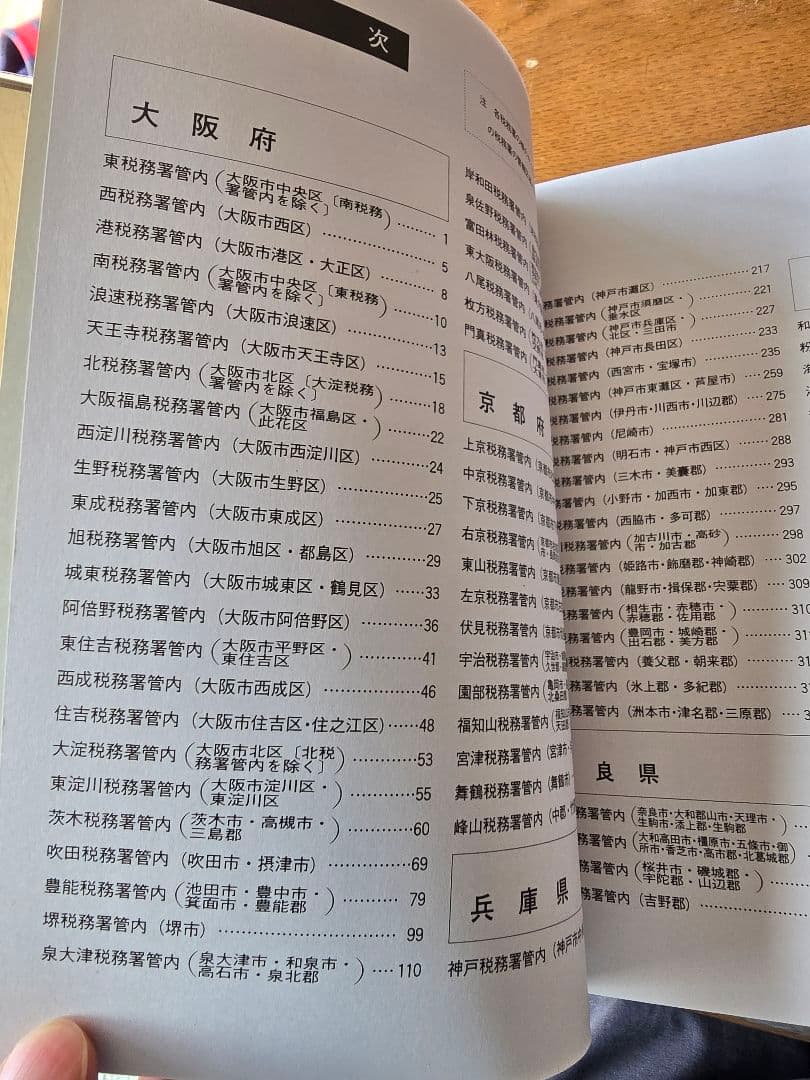 次
大阪府
東税務署管内（大阪市中央区〔南税務署管内を除く〕）……… 1
西税務署管内（大阪市西区）……………… 5
港税務署管内（大阪市港区・大正区）……… 8
南税務署管内（大阪市中央区〔東税務署管内を除く〕）……… 10
浪速税務署管内（大阪市浪速区）…………13
天王寺税務署管内（大阪市天王寺区）………15
北税務署管内（大阪市北区〔大淀税務署管内を除く〕）………18
大阪福島税務署管内（大阪市福島区・此花区）………22
西淀川税務署管内（大阪市西淀川区）………24
生野税務署管内（大阪市生野区）…………25
東成税務署管内（大阪市東成区）…………27
旭税務署管内（大阪市旭区・都島区）………29
城東税務署管内（大阪市城東区・鶴見区）……33
阿倍野税務署管内（大阪市阿倍野区）………36
東住吉税務署管内（大阪市平野区・東住吉区）………41
西成税務署管内（大阪市西成区）…………46
住吉税務署管内（大阪市住吉区・住之江区）……48
大淀税務署管内（大阪市北区〔北税務署管内を除く〕）………53
東淀川税務署管内（大阪市淀川区・東淀川区）………55
茨木税務署管内（茨木市・高槻市・三島郡）…………60
吹田税務署管内（吹田市・摂津市）…………69
豊能税務署管内（池田市・豊中市・箕面市・豊能郡）……… 79
堺税務署管内（堺市）……………………… 99
泉大津税務署管内（泉大津市・和泉市・高石市・泉北郡）…110
注　各税務署の
の税務署の管轄
岸和田税務署管内
泉佐野税務署管内
富田林税務署管内
東大阪税務署管内
八尾税務署管内
枚方税務署管内
門真税務署管内
京都府
上京税務署管内（京都
中京税務署管内（京都市
下京税務署管内（京都
右京税務署管内（京都市
東山税務署管内（京都市
左京税務署管内（京都
伏見税務署管内（京都市
宇治税務署管内
園部税務署管内（亀岡市
福知山税務署管内（福知山
宮津税務署管内（宮津市
舞鶴税務署管内（舞鶴市）
峰山税務署管内（中郡・
兵庫県
神戸税務署管内（神戸市中
務署管内（神戸市灘区）……………217
税務署管内（神戸市須磨区・垂水区）…………221
税務署管内（神戸市兵庫区・北区・三田市）………227
税務署管内（神戸市長田区）…………233
税務署管内（西宮市・宝塚市）………235
税務署管内（神戸市東灘区・芦屋市）……259
税務署管内（伊丹市・川西市・川辺郡）……275
税務署管内（尼崎市）………………281
税務署管内（明石市・神戸市西区）……288
税務署管内（三木市・美嚢郡）………293
務署管内（小野市・加西市・加東郡）……295
税務署管内（西脇市・多可郡）………297
税務署管内（加古川市・高砂市・加古郡）………298
税務署管内（姫路市・飾磨郡・神崎郡）……302
税務署管内（龍野市・揖保郡・宍粟郡）……309
税務署管内（相生市・赤穂市・赤穂郡・佐用郡）………310
税務署管内（豊岡市・城崎郡・出石郡・美方郡）………31
税務署管内（養父郡・朝来郡）………31
税務署管内（氷上郡・多紀郡）………31
税務署管内（洲本市・津名郡・三原郡）……3
良県
務署管内（奈良市・大和郡山市・天理市・生駒市・添上郡・生駒郡）
務署管内（大和高田市・橿原市・五條市・御所市・香芝市・高市郡・北葛城郡）
務署管内（桜井市・磯城郡・宇陀郡・山辺郡）………
務署管内（吉野郡）………………
和
粉